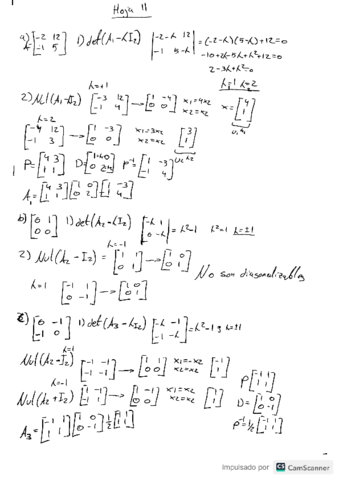 Hoja 11
a) A=[-2 12; -1 5] 1) det(A₁-λI₂) |-2-λ 12; -1 5-λ| = (-2-λ)(5-λ)+12=0
2-3λ+λ²=0
λ=1 λ=2
λ=1
2) Nul(A₁-λI₂) [-3 12; -1 4] → [1 -4; 0 0] x₁=4x₂ x₂=x₂ x=[4; 1]
λ=2
[-4 12; -1 3] → [1 -3; 0 0] x₁=3x₂ x₂=x₂ [3; 1]
P=[4 3; 1 1] D=[1 0; 0 2] P⁻¹[1 -3; -1 4]
A₁=[4 3; 1 1][1 0; 0 2][1 -3; -1 4]
b) [0 1; 0 0] 1) det(A₂-λI₂) [-λ 1; 0 -λ] = λ²-1 λ²-1 λ=±1
λ=-1
2) Nul(A₂-I₂) = [1 1; 0 1] → [1 0; 0 1]
No son diagonalizables
λ=1 [-1 1; 0 -1] → [1 0; 0 1]
c) [0 -1; -1 0] 1) det(A₃-λI₂) [-λ -1; -1 -λ] = λ²-1 λ=±1
λ=1
Nul(A₂-I₂) [-1 -1; -1 -1] → [1 1; 0 0] x₁=-x₂ x₂=x₂ [-1; 1]
λ=-1
Nul(A₂+I₂) [1 -1; -1 1] → [1 -1; 0 0] x₁=x₂ x₂=x₂ [1; 1]
P[-1 1; 1 1]
D=[1 0; 0 -1]
A₃=[-1 1; 1 1][1 0; 0 -1] 1/2[-1 1; 1 1]
P⁻¹=1/2[-1 1; 1 1]
Impulsado por CS CamScanner